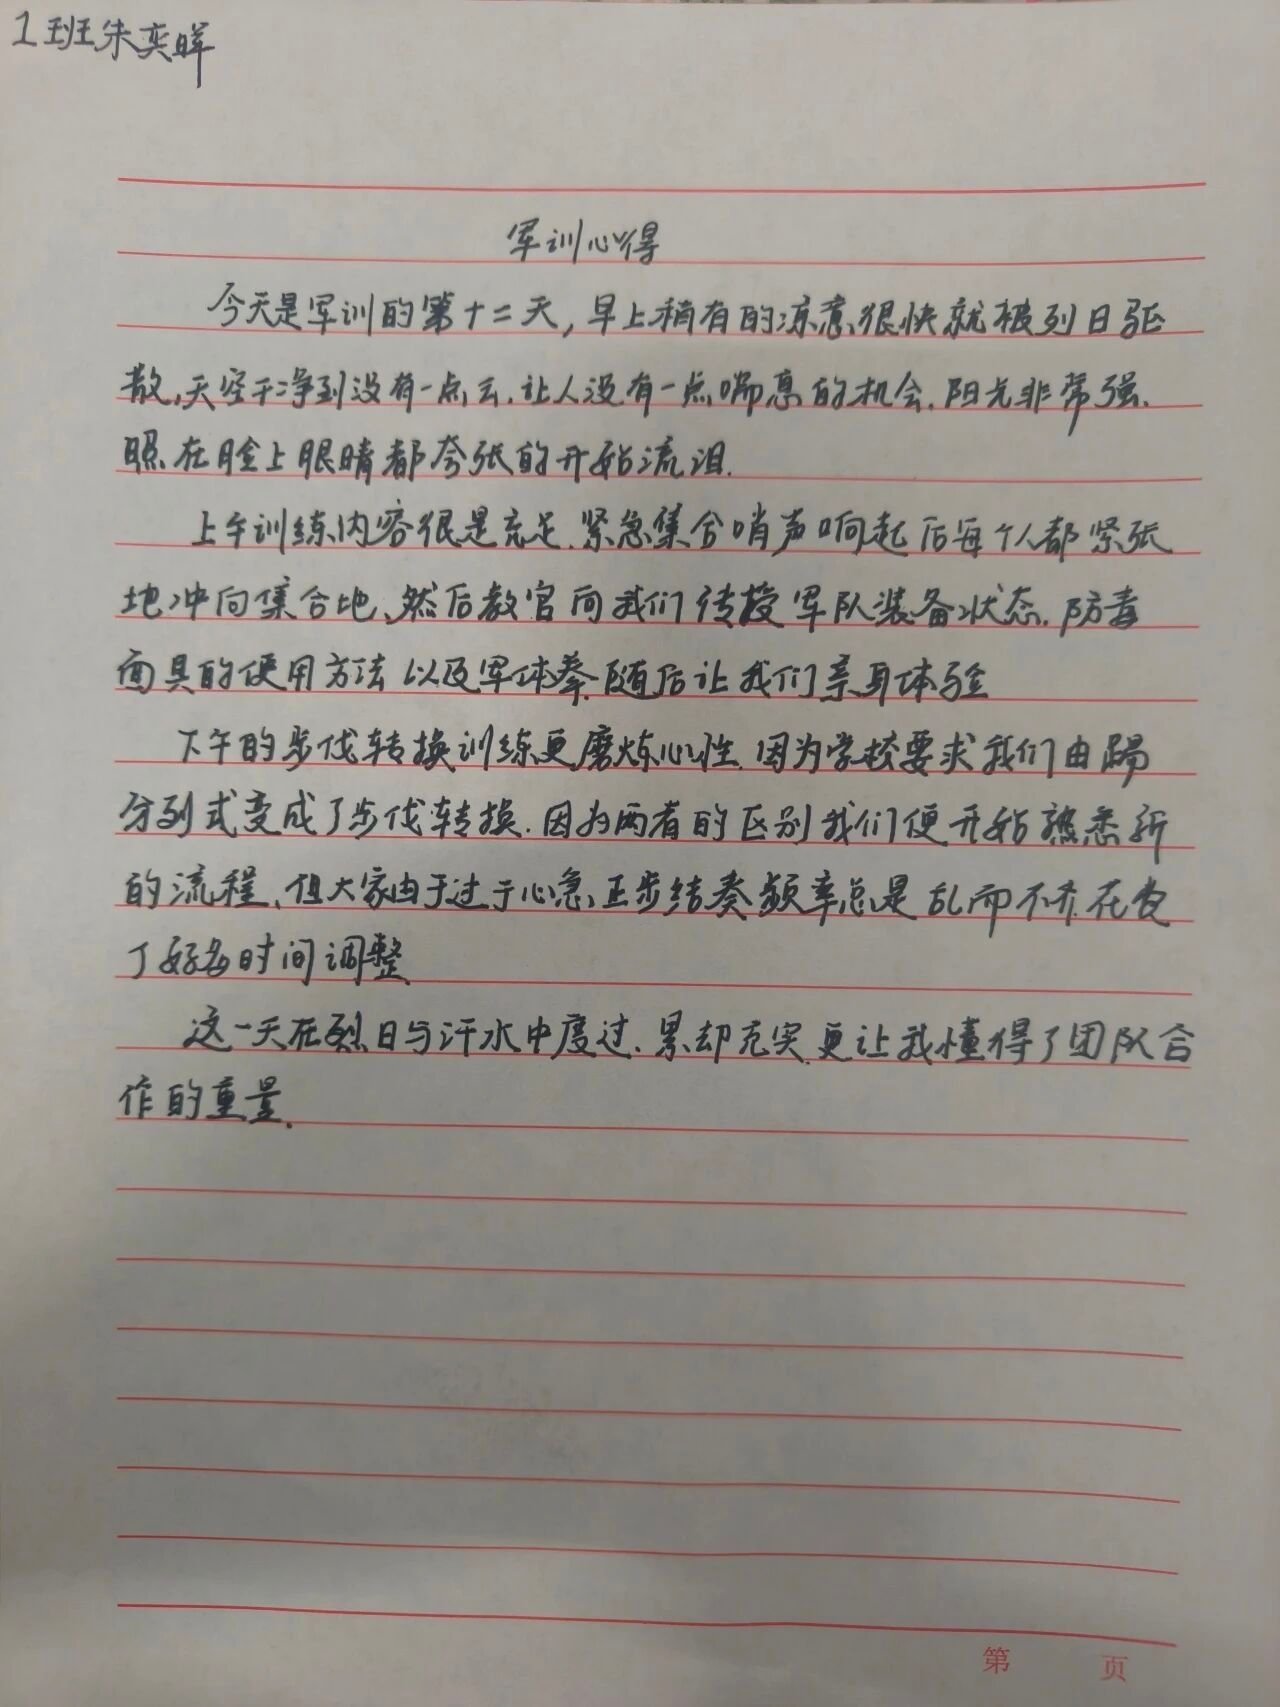 1班朱奕晖
军训心得
今天是军训的第十二天,早上稍有的凉意很快就被列日驱
散,天空干净到没有一点云.让人没有一点喘息的机会.阳光非常强.
照在脸上眼睛都夸张的开始流泪.
上午训练内容很是充足.紧急集合哨声响起后每个人都紧张
地冲向集合地、然后教官向我们传授军队装备状态.防毒
面具的使用方法以及军体拳.随后让我们亲身体验
下午的步伐转换训练更磨炼心性.因为学校要求我们由踢
分列式变成了步伐转换.因为两者的区别我们便开始熟悉新
的流程、但大家由于过于心急、正步结奏频率总是乱而不齐.花费
了好多时间调整.
这一天在烈日与汗水中度过.累却充实.更让我懂得了团队合
作的重量.
第 页